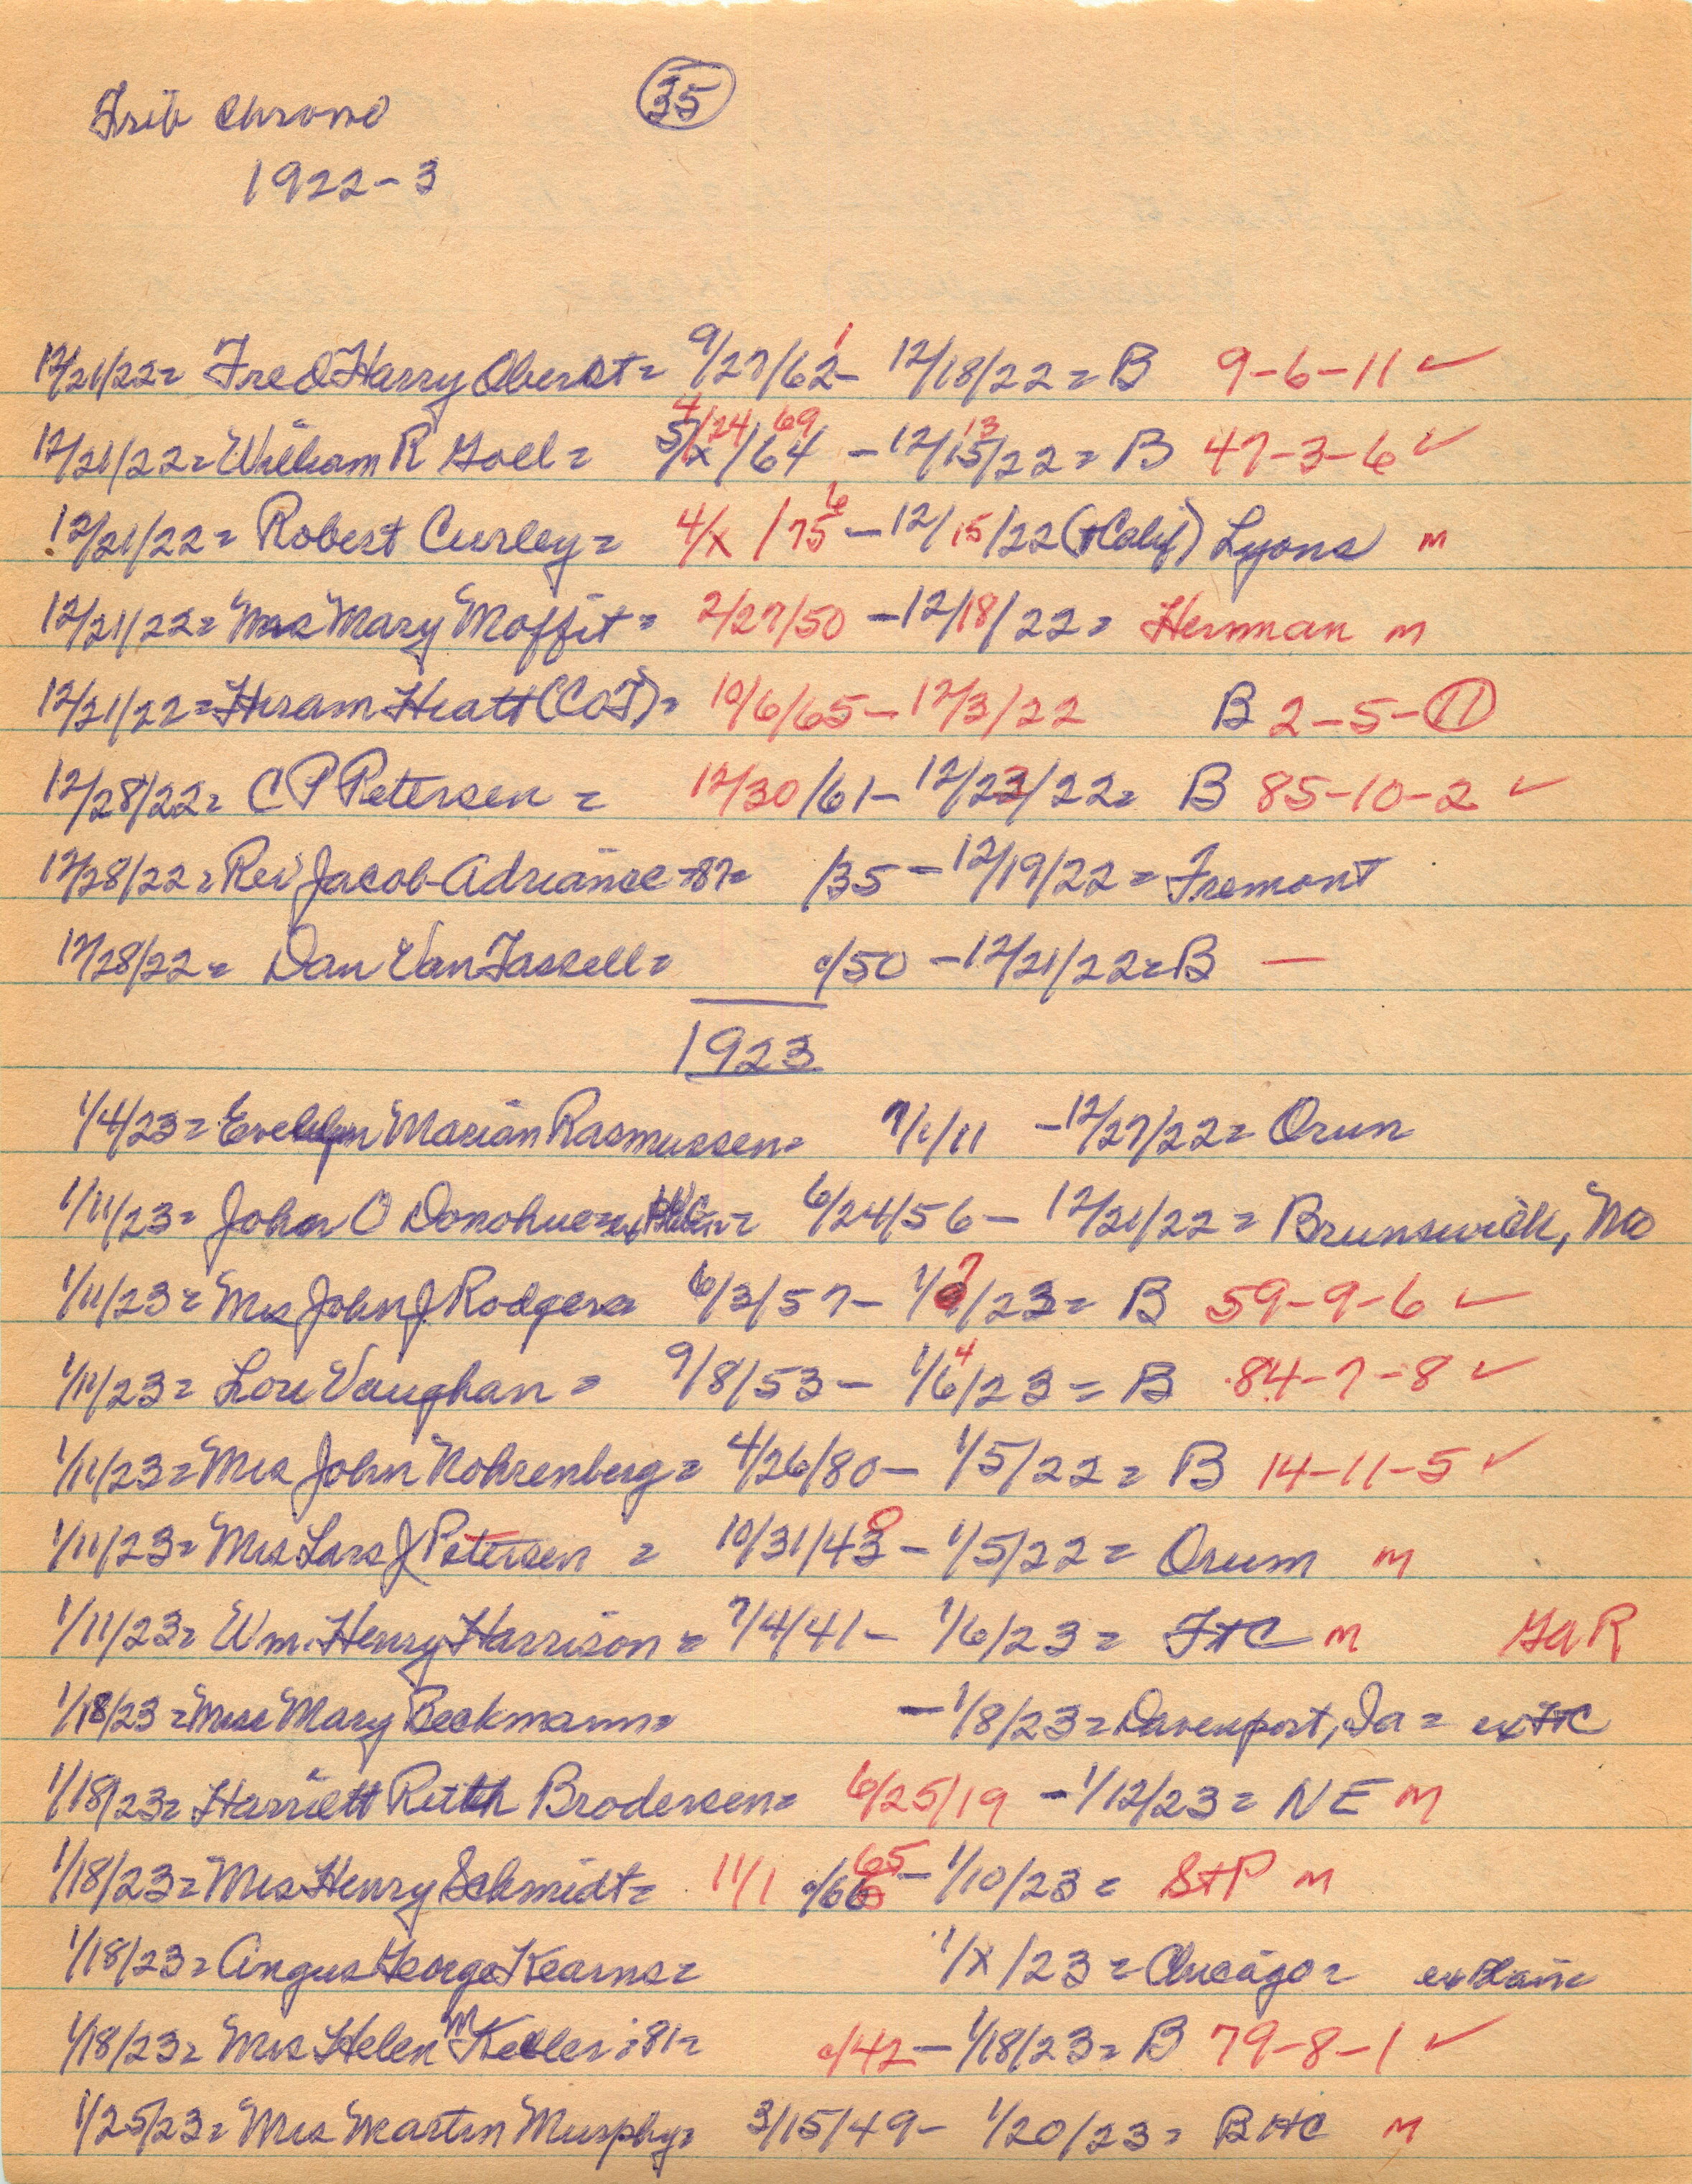 Trib Chrono 35
1922-3
12/21/22= Fred Harry Oberst= 9/27/62 1 - 12/18/22= B 9-6-11 ✓
12/21/22= William R Goll= 5/x/64 4/24 69 - 12/15/22 13 = B 47-3-6 ✓
12/21/22= Robert Curley= 4/x/75 6 - 12/15/22 (+Calif) Lyons m
12/21/22= Mrs Mary Moffit= 2/27/50 - 12/18/22= Herman m
12/21/22= Hiram Hiatt (CoT)= 10/6/65 - 12/3/22 B 2-5-11
12/28/22= C P Petersen = 12/30/61 - 12/23/22= B 85-10-2 ✓
12/28/22= Rev Jacob Adriance -87= /35 - 12/19/22= Fremont
12/28/22= Dan Van Tassell= c/50 - 12/21/22= B —
1923
1/4/23= Evelyn Marian Rasmussen= 7/1/11 - 12/27/22= Orum
1/11/23= John O Donohue= 6/24/56 - 12/21/22= Brunswick, Mo
1/11/23= Mrs John J Rodgers 6/3/57 - 1/ 7 /23= B 59-9-6 ✓
1/11/23= Lou Vaughan= 9/8/53 - 1/6/23 4 = B 84-7-8 ✓
1/11/23= Mrs John Nohrenberg= 4/26/80 - 1/5/22= B 14-11-5 ✓
1/11/23= Mrs Lars J Petersen = 10/31/43 0 - 1/5/22= Orum m
1/11/23= Wm. Henry Harrison= 7/4/41 - 1/6/23= FtC m GAR
1/18/23= Mrs Mary Beckmann= - 1/8/23= Davenport, Ia= ex FtC
1/18/23= Harriett Ruth Brodersen= 6/25/19 - 1/12/23= NE m
1/18/23= Mrs Henry Schmidt= 11/1 c/66 65 - 1/10/23= StP m
1/18/23= Angus George Kearns= 1/x/23= Chicago= ex Blair
1/18/23= Mrs Helen M Keller =81= c/42 - 1/18/23= B 79-8-1 ✓
1/25/23= Mrs Martin Murphy= 3/15/49 - 1/20/23= BHC m